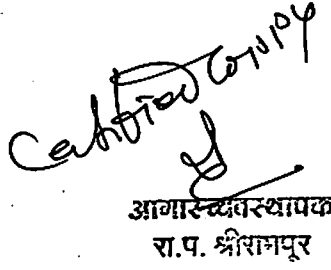 Certified copy
आगारव्यवस्थापक
रा.प. श्रीरामपूर